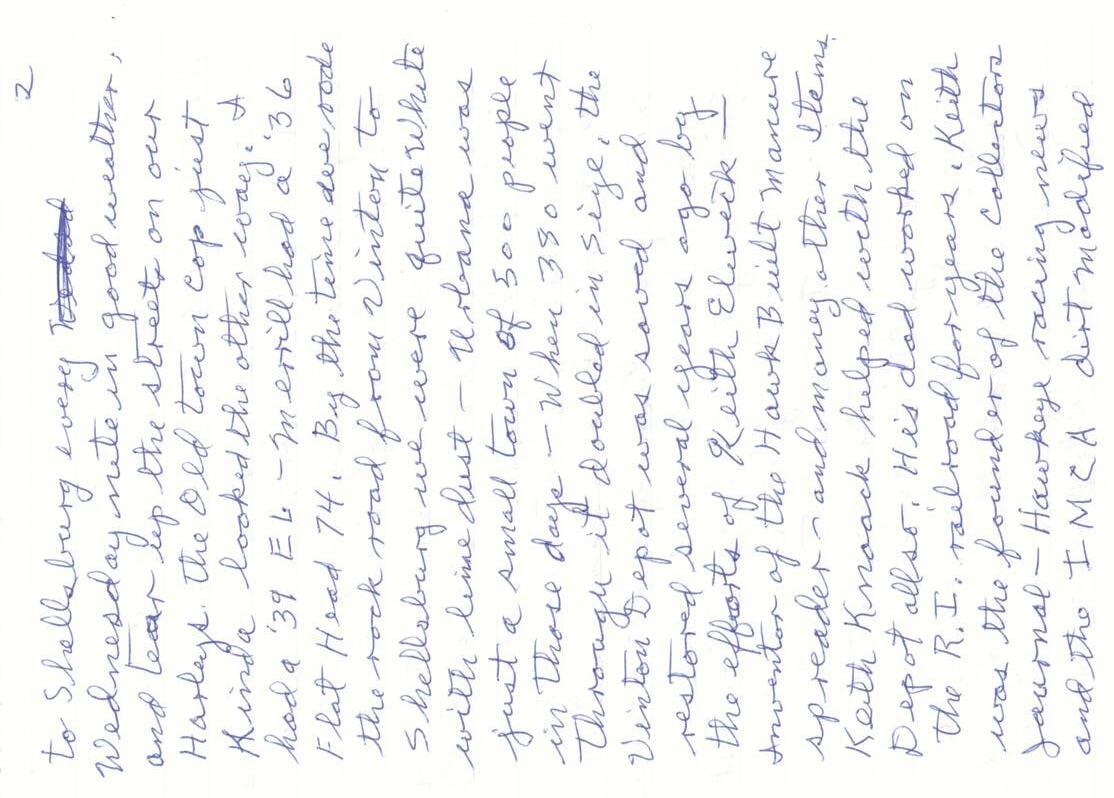 2
to Shellsburg every
Wednesday nite in good weather,
and tear up the streets on our
Harleys. the Old town cop just
Kinda looked the other way. I
had a '39 EL - Merrill had a '36
Flat Head 74. By the time we rode
the rock road from Vinton to
Shellsburg we were quite White
with lime dust - Urbana was
just a small town of 500 people
in those days - When 380 went
through it doubled in size, the
Vinton Depot was saved and
restored several years ago by
the efforts of Keith Elwick -
Inventor of the Hawk Built Manure
spreader - and many other Items.
Keith Knaack helped with the
Depot allso. His dad worked on
the R.I. railroad for years. Keith
was the founder of the collectors
journal - Hawkeye racing news
and the I M C A dirt modified